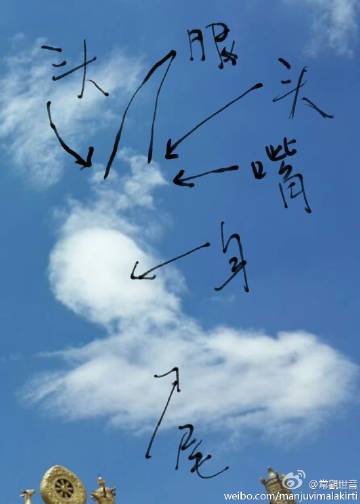 头
服
头
嘴
身
尾
@常觀世音
weibo.com/manjuvimalakirti